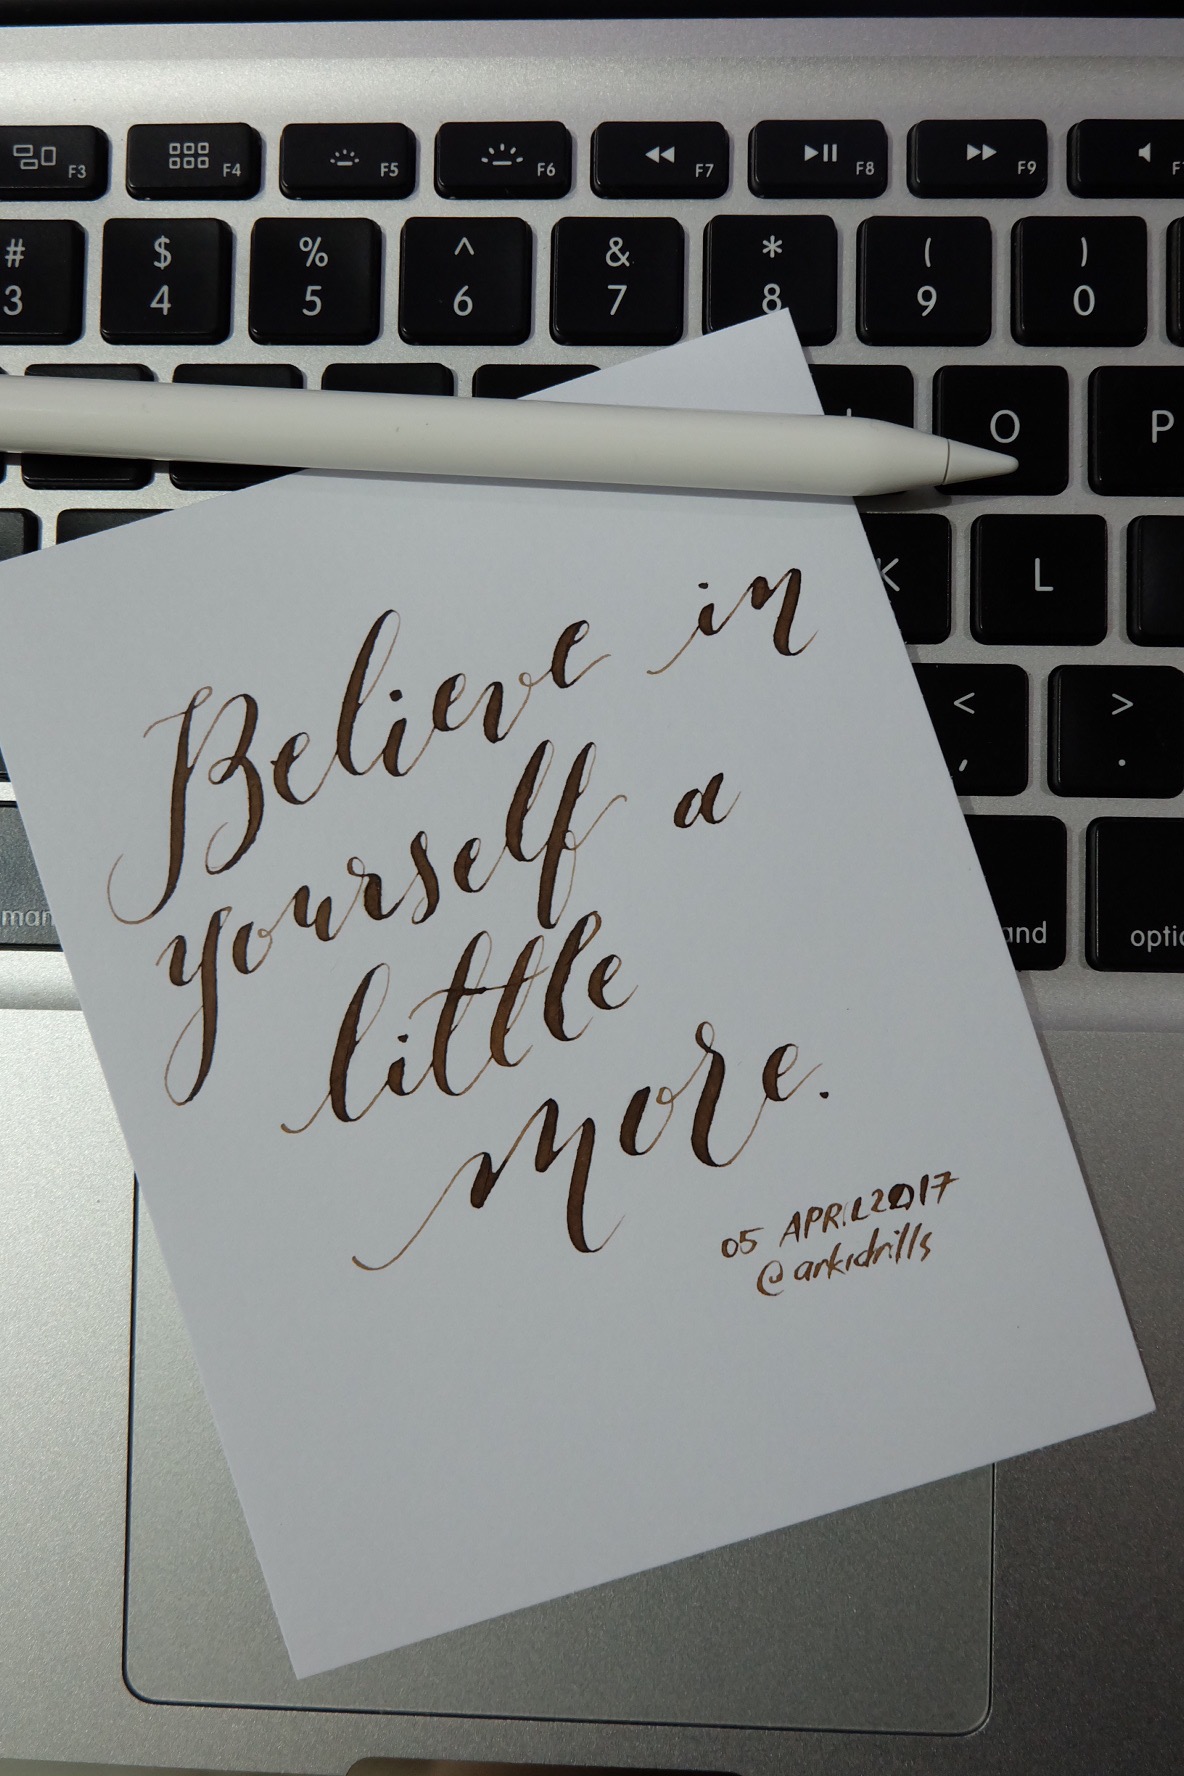 F3 F4 F5 F6 F7 F8 F9
# $ % ^ & * ( )
3 4 5 6 7 8 9 0
O P
K L
< >
, .
Believe in
yourself a
little
more.
05 APRIL 2017
@arkidrills